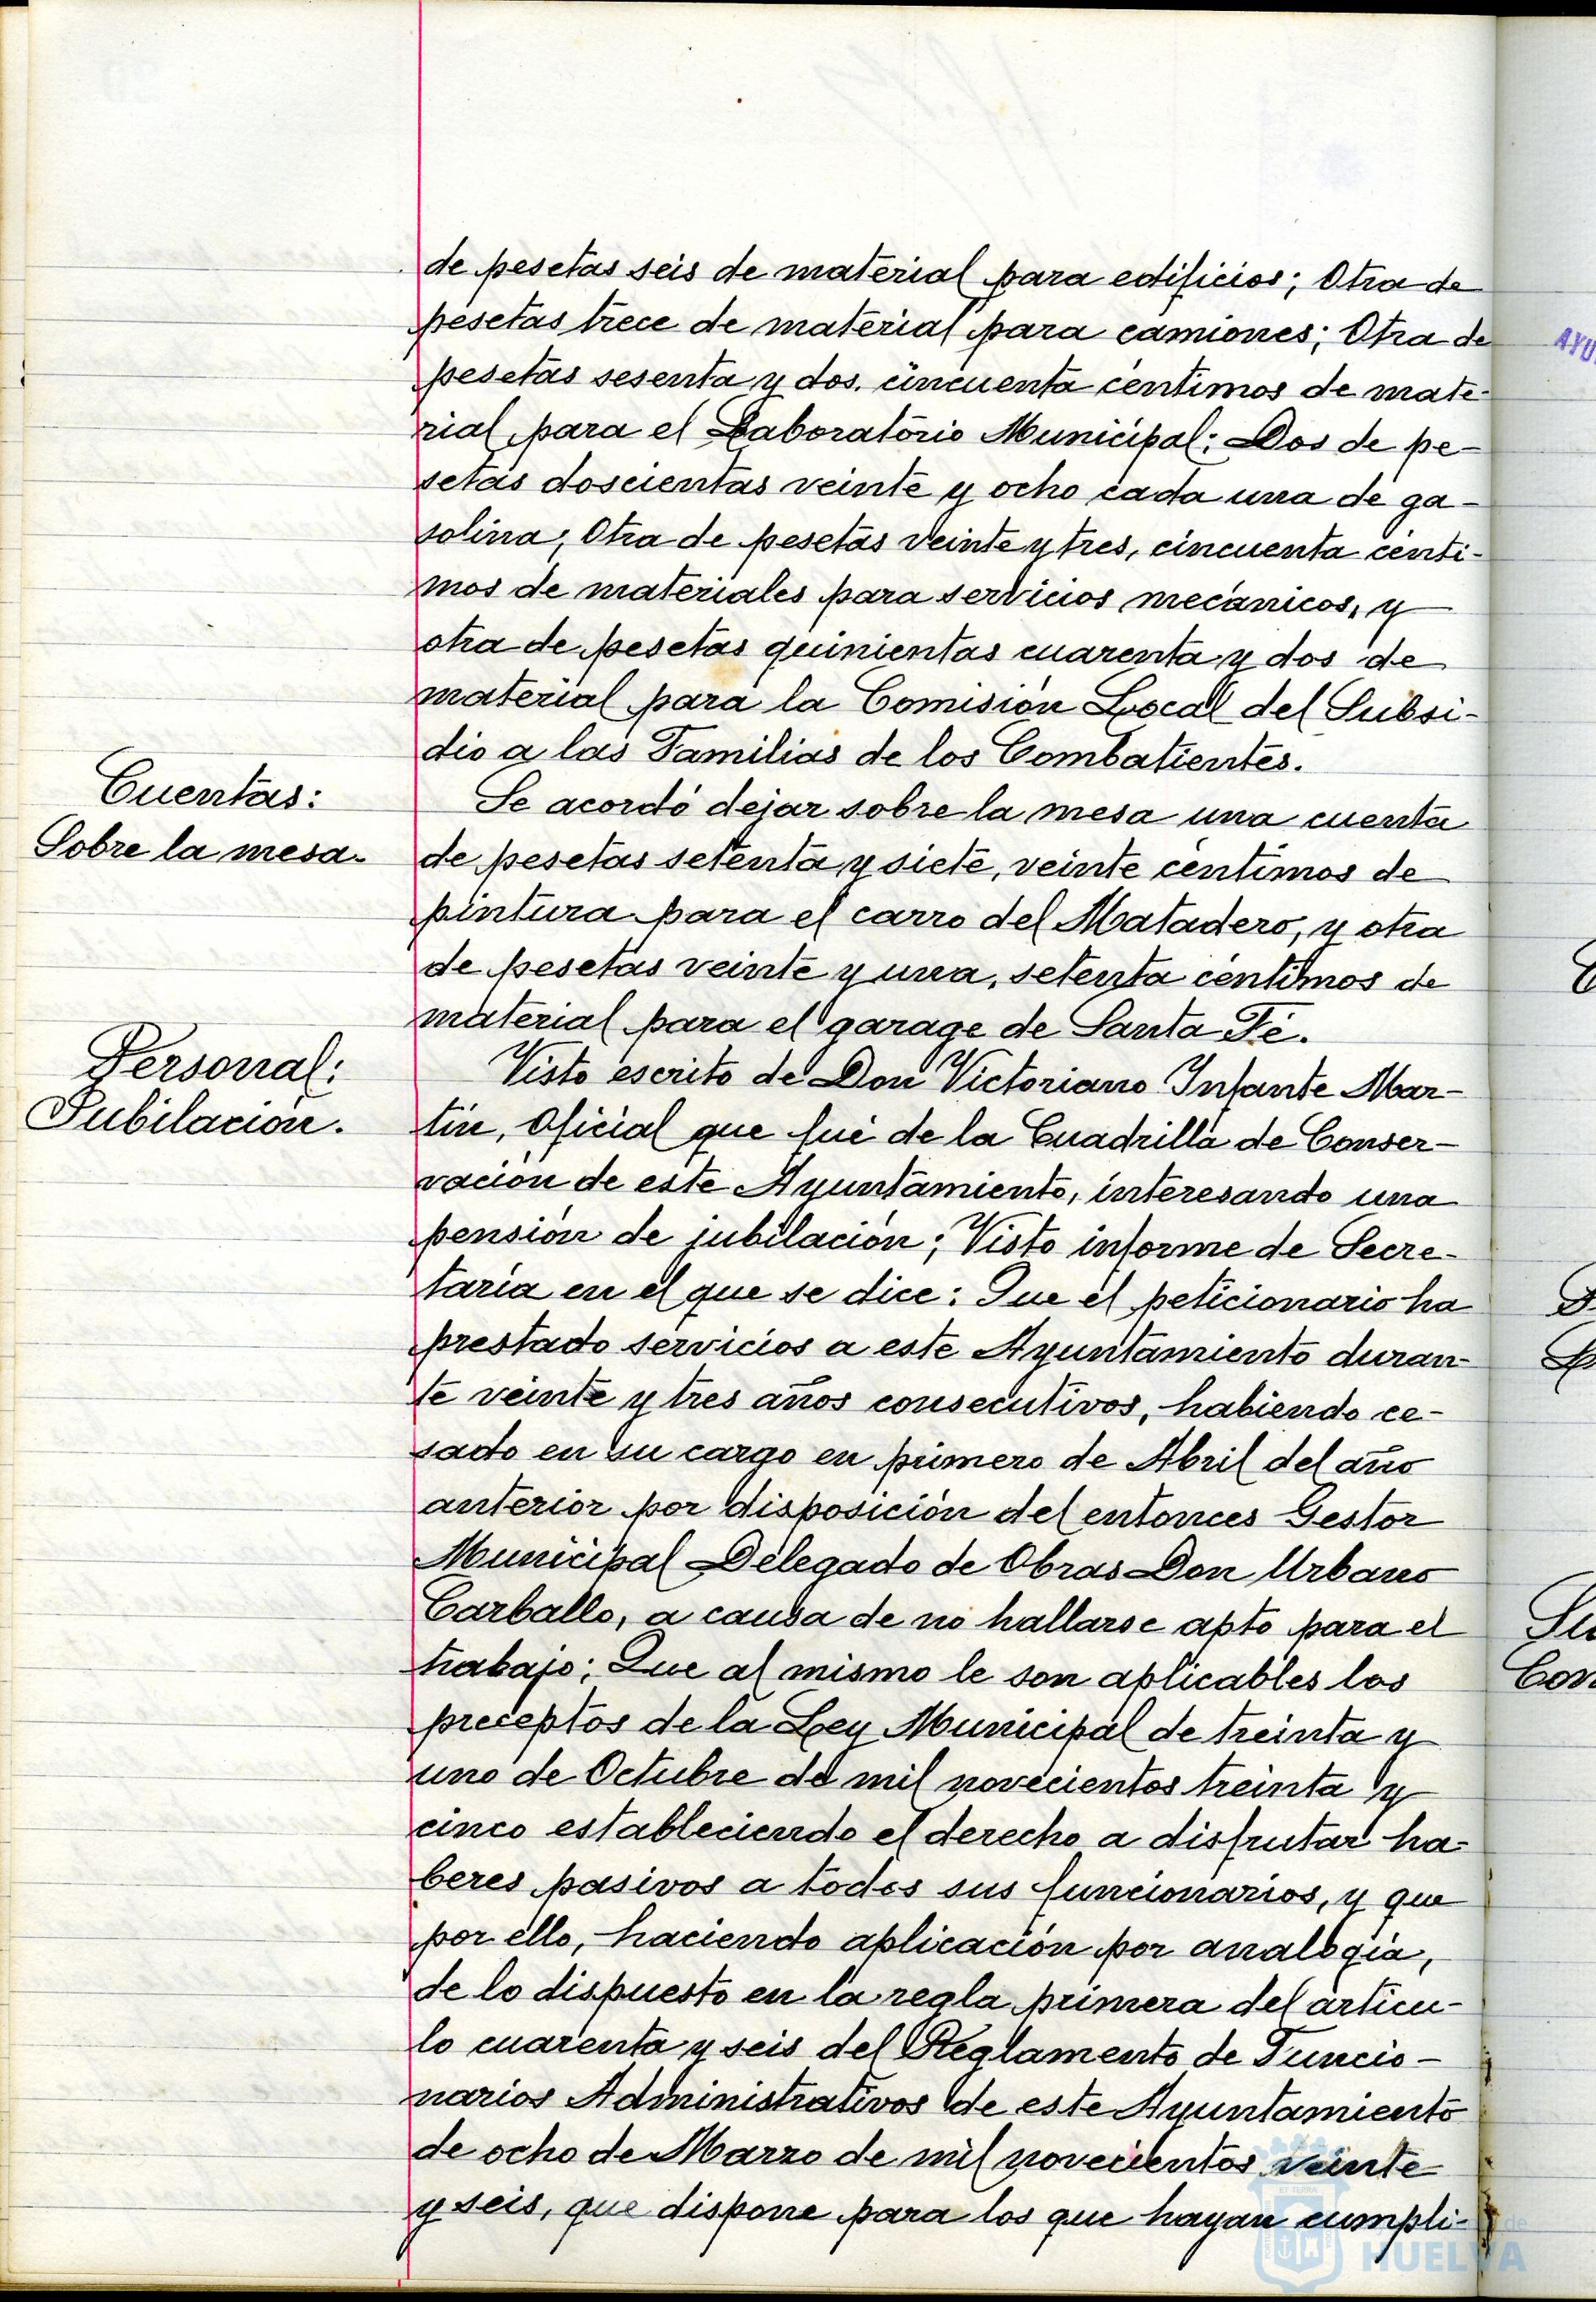 de pesetas seis de material para edificios; Otra de
pesetas trece de material para camiones; Otra de
pesetas sesenta y dos. cincuenta céntimos de mate-
rial para el Laboratorio Municipal; Dos de pe-
setas doscientas veinte y ocho cada una de ga-
solina; Otra de pesetas veinte y tres, cincuenta cénti-
mos de materiales para servicios mecánicos, y
otra de pesetas quinientas cuarenta y dos de
material para la Comisión Local del Subsi-
dio a las Familias de los Combatientes.
Cuentas:
Sobre la mesa.
Se acordó dejar sobre la mesa una cuenta
de pesetas setenta y siete, veinte céntimos de
pintura para el carro del Matadero, y otra
de pesetas veinte y una, setenta céntimos de
material para el garage de Santa Fé.
Personal:
Jubilación.
Visto escrito de Don Victoriano Infante Mar-
tín, Oficial que fué de la Cuadrilla de Conser-
vación de este Ayuntamiento, interesando una
pensión de jubilación; Visto informe de Secre-
taría en el que se dice: Que el peticionario ha
prestado servicios a este Ayuntamiento duran-
te veinte y tres años consecutivos, habiendo ce-
sado en su cargo en primero de Abril del año
anterior por disposición del entonces Gestor
Municipal Delegado de Obras Don Urbano
Carballo, a causa de no hallarse apto para el
trabajo; Que al mismo le son aplicables los
preceptos de la Ley Municipal de treinta y
uno de Octubre de mil novecientos treinta y
cinco estableciendo el derecho a disfrutar ha-
beres pasivos a todos sus funcionarios, y que
por ello, haciendo aplicación por analogía,
de lo dispuesto en la regla primera del artícu-
lo cuarenta y seis del Reglamento de Funcio-
narios Administrativos de este Ayuntamiento
de ocho de Marzo de mil novecientos veinte
y seis, que dispone para los que hayan cumpli-
de
HUELVA